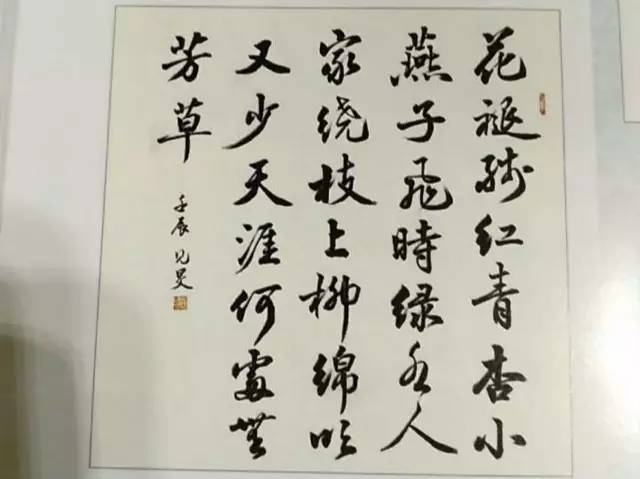 花褪残红青杏小
燕子飛時绿水人
家绕枝上柳绵吹
又少天涯何處無
芳草
壬辰